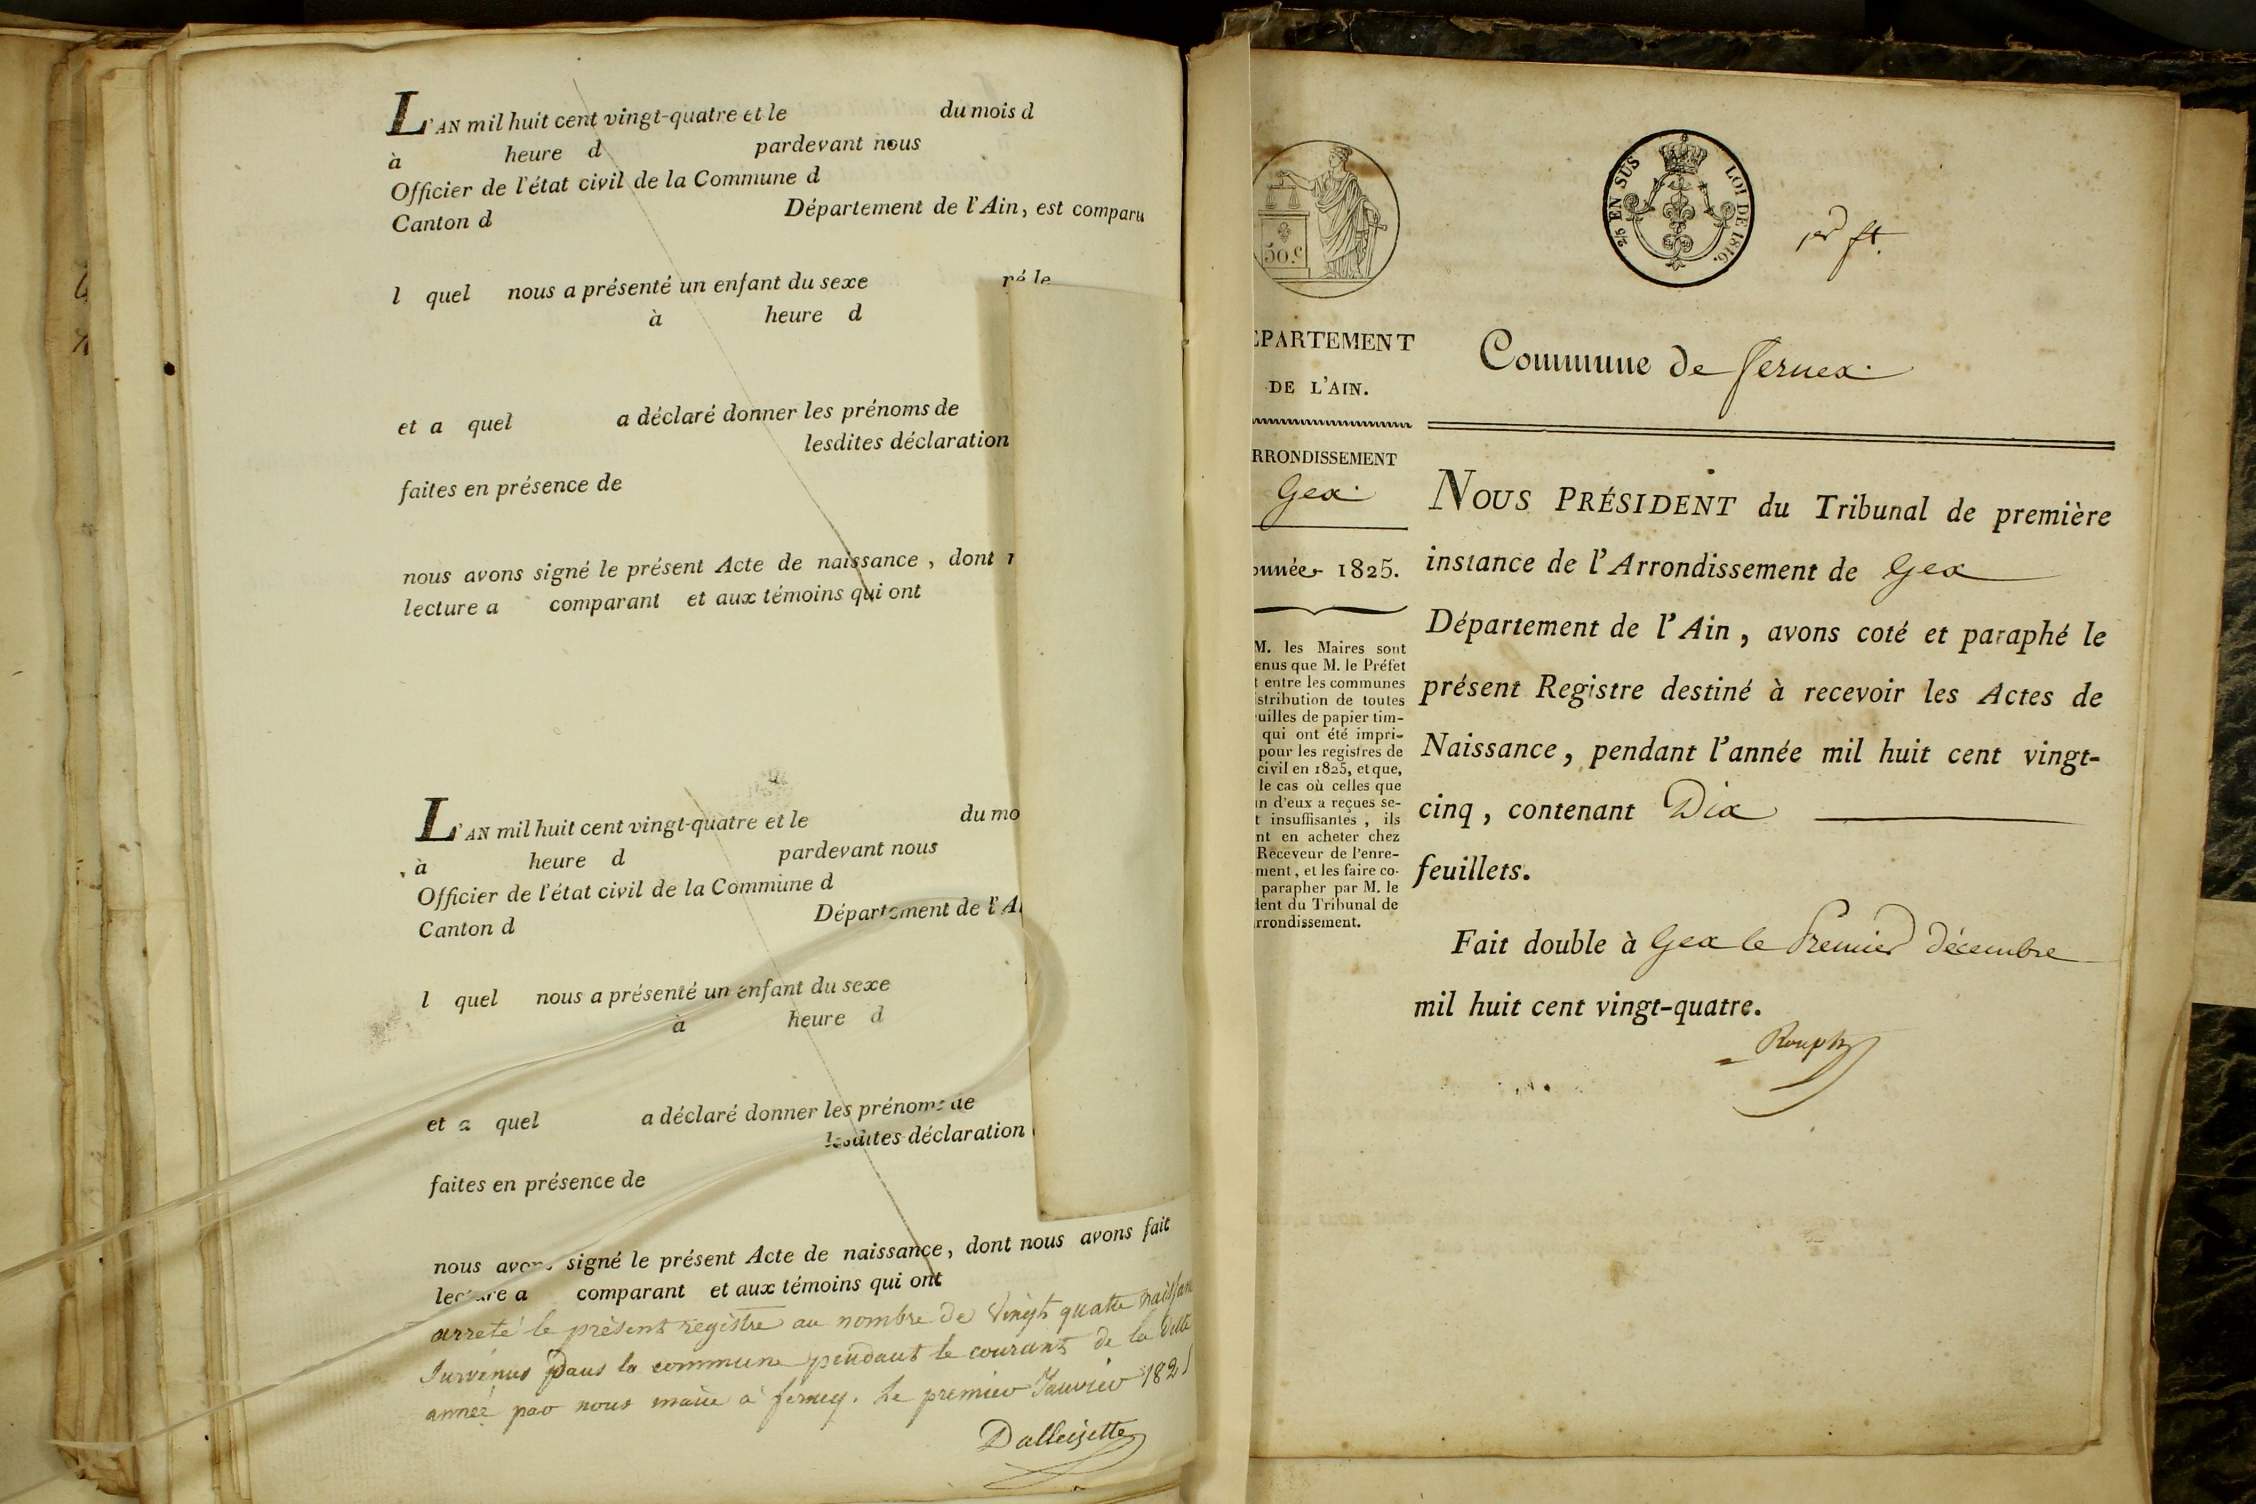 L'AN mil huit cent vingt-quatre et le du mois d
à heure d pardevant nous
Officier de l'état civil de la Commune d
Canton d Département de l'Ain, est comparu
l quel nous a présenté un enfant du sexe né le
à heure d
et a quel a déclaré donner les prénoms de
lesdites déclaration
faites en présence de
nous avons signé le présent Acte de naissance, dont
lecture a comparant et aux témoins qui ont
L'AN mil huit cent vingt-quatre et le du mo
à heure d pardevant nous
Officier de l'état civil de la Commune d
Canton d Département de l'A
l quel nous a présenté un enfant du sexe
à heure d
et a quel a déclaré donner les prénoms de
lesdites déclaration
faites en présence de
nous avons signé le présent Acte de naissance, dont nous avons fait
lecture a comparant et aux témoins qui ont
arreté le présent registre au nombre de vingt quatre naissan
survenus dans la commune pendant le courant de la dette
année par nous maire à ferney. le premier Janvier 182
Dalleizette
50.c
2/5 EN SUS LOI DE 1816.
1er ft.
EPARTEMENT
DE L'AIN.
RRONDISSEMENT
Gex.
onnée 1825.
M. les Maires sont
enus que M. le Préfet
t entre les communes
stribution de toutes
uilles de papier tim-
qui ont été impri-
pour les registres de
civil en 1825, et que,
le cas où celles que
n d'eux a reçues se-
t insuffisantes, ils
nt en acheter chez
Receveur de l'enre-
ment, et les faire co-
parapher par M. le
dent du Tribunal de
rrondissement.
Commune de Fernex.
NOUS PRÉSIDENT du Tribunal de première
instance de l'Arrondissement de Gex
Département de l'Ain, avons coté et paraphé le
présent Registre destiné à recevoir les Actes de
Naissance, pendant l'année mil huit cent vingt-
cinq, contenant Dix
feuillets.
Fait double à Gex le Premier décembre
mil huit cent vingt-quatre.